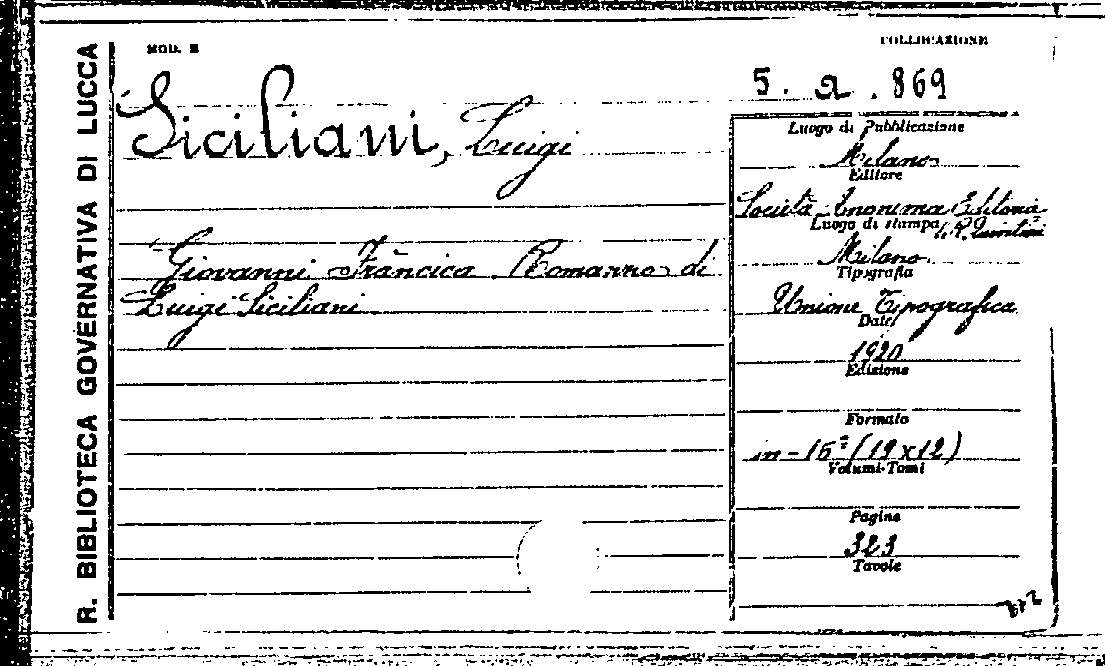 R. BIBLIOTECA GOVERNATIVA DI LUCCA
MOD. E
COLLOCAZIONE
5. a. 869
Siciliani, Luigi
Giovanni Frància. Romanzo di
Luigi Siciliani
Luogo di Pubblicazione
Milano
Editore
Società Anonima Editoria
Luogo di stampa
Milano
Tipografia
Unione Tipografica
Data
1920
Edizione
Formato
in-16º (19x12)
Volumi-Tomi
Pagine
323
Tavole